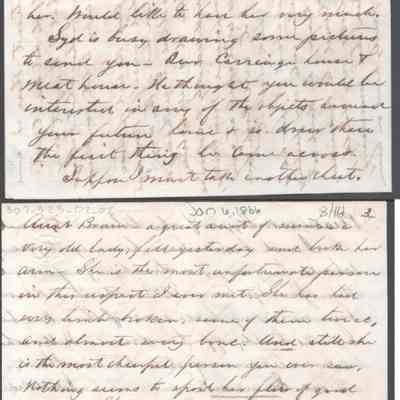 her. Would like to have her very much.
Syd is busy drawing some pictures
to send you - Our Carriage house &
Meat house. He thought you would be
interested in any of the objects around
your future home & is drawing there
the first thing he came across.
I suppose I must take another sheet.
Jan 6, 1866 8/16 2
Aunt - a great aunt of mine - a
very old lady, fell yesterday and broke her
arm - She is the most unfortunate person
in this respect I ever met. She has had
every limb broken, some of them twice,
and almost every bone. And still she
is the most cheerful person you ever saw.
Nothing seems to spoil her flow of good